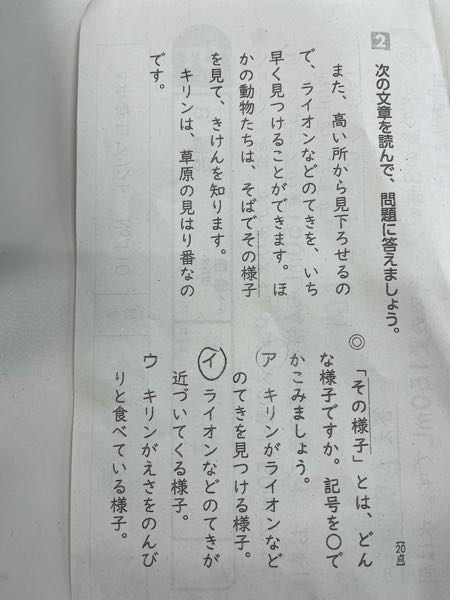 2 次の文章を読んで、問題に答えましょう。
また、高い所から見下ろせるの
で、ライオンなどのてきを、いち
早く見つけることができます。ほ
かの動物たちは、そばでその様子
を見て、きけんを知ります。
キリンは、草原の見はり番なの
です。
◎「その様子」とは、どん
な様子ですか。記号を○で
かこみましょう。
【20点】
ア キリンがライオンなど
のてきを見つける様子。
イ ライオンなどのてきが
近づいてくる様子。
ウ キリンがえさをのんび
りと食べている様子。